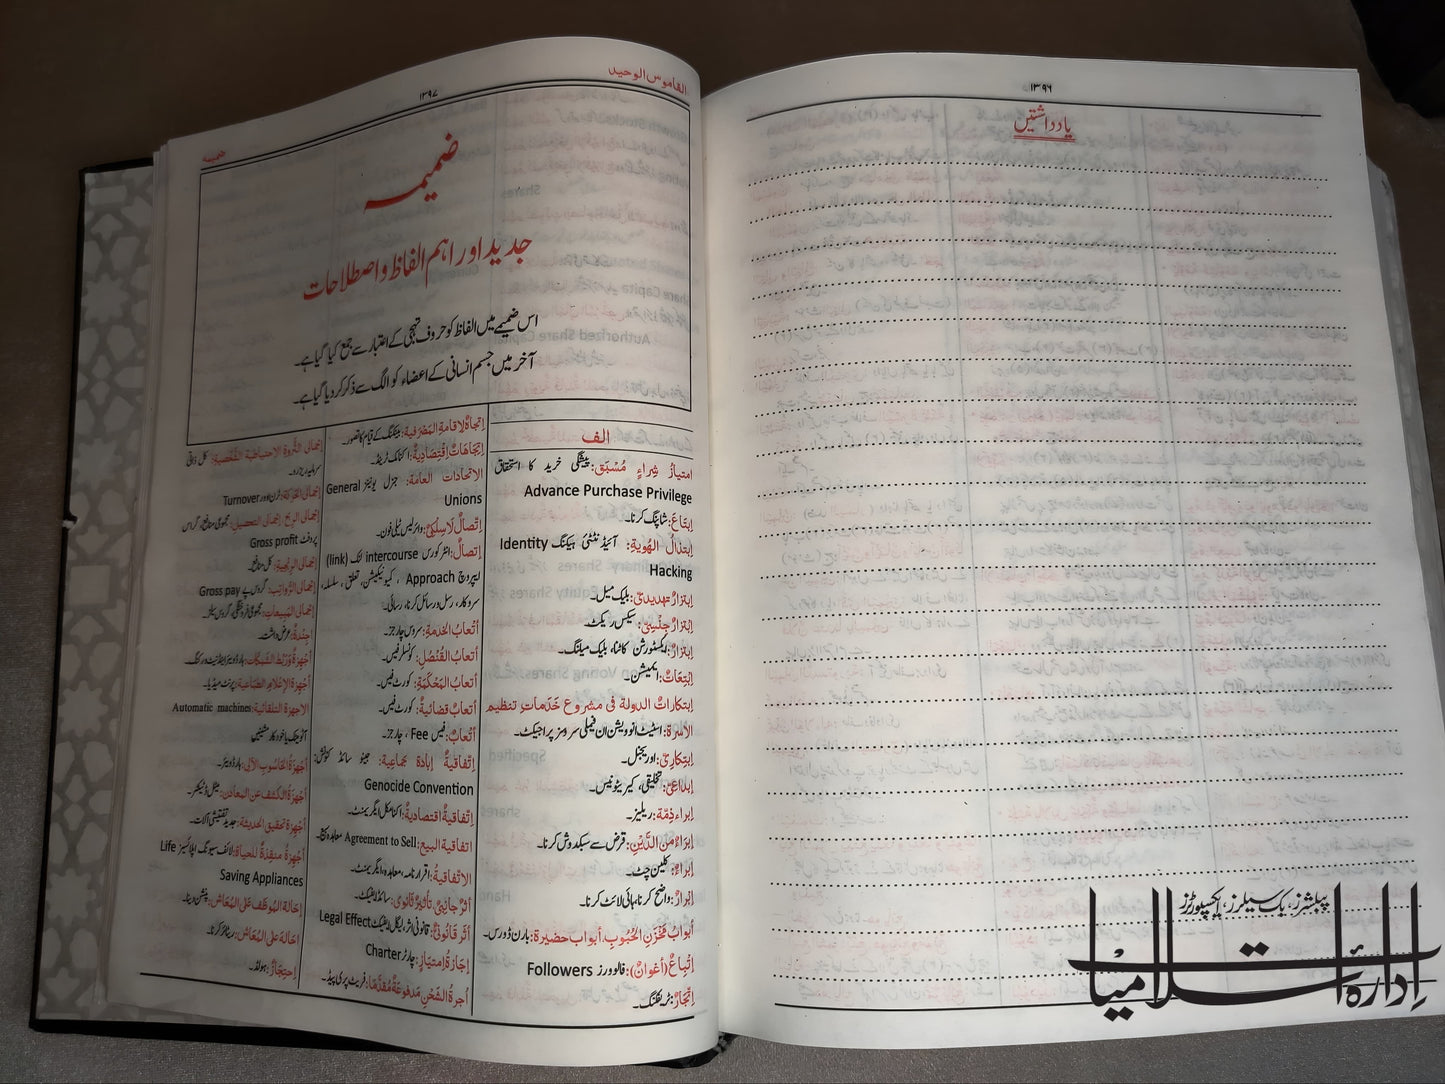 ۱۳۹۶
یادداشتیں
القاموس الوحید
۱۳۹۷
ضمیمہ
ضمیمہ
جدید اور اہم الفاظ و اصطلاحات
اس ضمیمے میں الفاظ کو حروف تہجی کے اعتبار سے جمع کیا گیا ہے۔
آخر میں جسم انسانی کے اعضاء کو الگ سے ذکر کر دیا گیا ہے۔
الف
امتیازُ شِراءٍ مُسْبَق: پیشگی خرید کا استحقاق
Advance Purchase Privilege
اِبتاعَ: شاپنگ کرنا۔
اِبتذالُ الهُوِية: آئیڈنٹٹی ہیکنگ Identity
Hacking
اِبتزازٌ تهديديّ: بلیک میل۔
اِبتزازٌ جِنْسِيّ: سیکس ریکٹ۔
اِبتزازٌ: ایکسٹورشن کاٹنا، بلیک میلنگ۔
اِبتِعاثٌ: ایمیشن۔
اِبتكاراتُ الدولة في مشروع خَدَماتِ تنظيم
الأسرة: اسٹیٹ انوویشن ان فیملی سروسز پراجیکٹ۔
اِبتكاريّ: اوریجنل۔
اِبداعيّ: تخلیقی، کیریٹونیس۔
اِبراء ذِمّة: ریلیز۔
اِبراءٌ مِنَ الدَّيْنِ: قرض سے سبکدوش کرنا۔
اِبراءٌ: کلین چٹ۔
اِبْرازٌ: واضح کرنا، ہائی لائٹ کرنا۔
أبوابُ مَخْزَنِ الحُبُوبِ، أبواب حضيرة: بارن ڈورس۔
اِتْباعٌ (أعْوانٌ): فالوورز Followers
اِتِّجارٌ: ٹریفکنگ۔
اِتجاهٌ لاقامة المَصْرَفية: بینکنگ کے قیام کا تصور۔
اِتّجاهاتٌ اِقتصاديةٌ: اکنامک ٹرینڈ۔
الاتحادات العامة: جنرل یونینز General
Unions
اِتّصالٌ لَاسِلْكِيّ: وائرلیس ٹیلی فون۔
اِتصالٌ: انٹرکورس intercourse لنک (link)
اپروچ Approach ، کمیونیکیشن، تعلق، سلسلہ،
سروکار، رسل ورسائل کرنا، رسائی۔
أتعابُ الخدمةِ: سروس چارجز۔
أتعابُ القُنْصُل: کونسلر فیس۔
أتعابُ المَحْكَمَةِ: کورٹ فیس۔
أتعابٌ قضائيةٌ: کورٹ فیس۔
أتعابٌ: فیس Fee ، چارجز۔
اِتفاقيةُ اِبادة جَماعية: جینو سائڈ کنونشن:
Genocide Convention
اِتّفاقيةٌ اقتصاديةٌ: اکنامکل ایگریمنٹ۔
اتفاقية البيع: Agreement to Sell معاہدہ بیع۔
الاتفاقيةُ: اقرارنامہ، معاہدہ، ایگریمنٹ۔
أثرٌ جانِبيّ، تأثيرٌ ثانوي: سائڈ ایفیکٹ۔
أثر قانُونيّ: قانونی اثر، لیگل ایفیکٹ Legal Effect
إجازةُ امتيازٍ: چارٹر Charter
أجرةُ الشَّحْنِ مَدفوعةٌ مُقدَّمًا: فریٹ پری پیڈ۔
اِجمالي الثَّروة الاحتياطية الشَّخصية: کل ذاتی
سرمایہ ریزرو۔
اِجمالي الحَرَكة: ٹرن اوور Turnover
اِجمالي الرِّبح، اِجمالي التحصيل: مجموعی منافع، گراس
پروفٹ Gross profit
اِجمالي الرّبحية: کل منافع۔
اِجمالي الرَّواتب: گروس پے Gross pay
اِجمالي المَبيعات: مجموعی فروختگی، گروس سیلز۔
أجهزةُ الإعلام الطباعية: پرنٹ میڈیا۔
الاجهزة التلقائية: Automatic machines
آٹومیٹک یا خودکار مشینیں
أجهزةُ الحاسوب الآلي: ہارڈویئر۔
أجهزة الكشف عن المعادن: میٹل ڈٹیکٹر۔
أجهزة تحقيق الحديثة: جدید تفتیشی آلات۔
أجهزةٌ منقِذةٌ للحياة: لائف سیونگ اپلائنسیز Life
Saving Appliances
اِحالة المُوظّف عَلى المُعاش: پنشن دینا۔
اِحالة على المُعاش: ریٹائر کرنا۔
اِحتِجازٌ: ہولڈ۔
پبلشرز، بک سیلرز، ایکسپورٹرز
ادارۂ اسلامیات